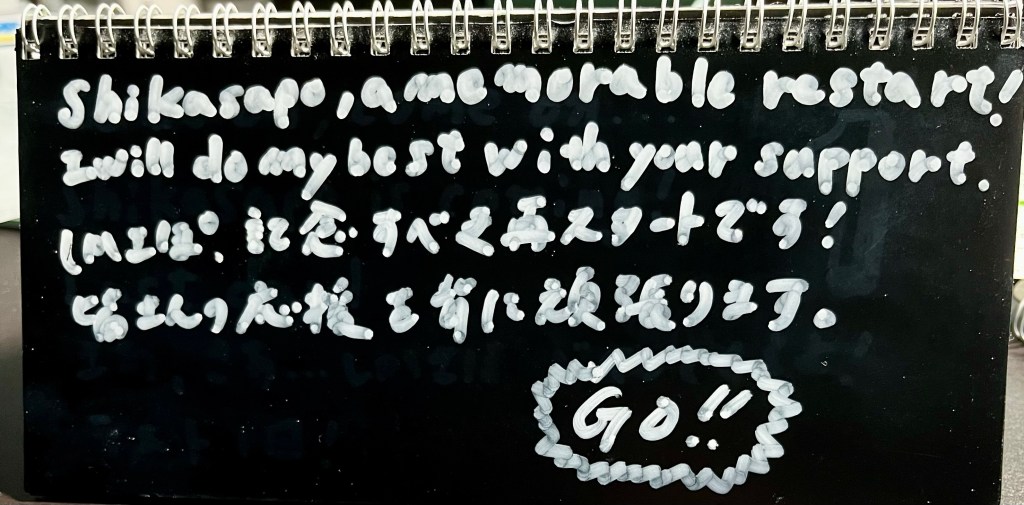 Shikasapo, a memorable restart!
I will do my best with your support.
しかエぽ、記念すべく再スタートです!
皆さんの応援を背に頑張ります。
GO!!